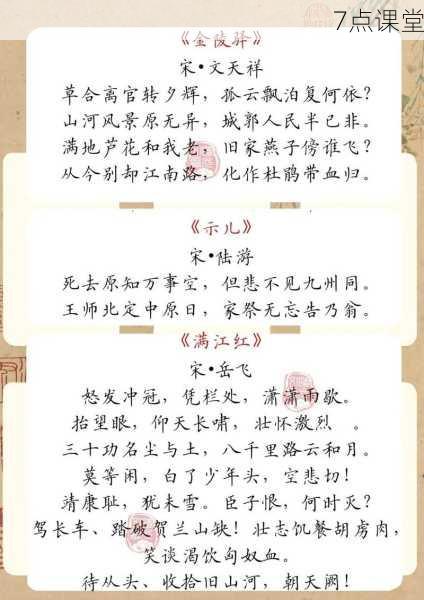 7点课堂
《金陵驿》
宋•文天祥
草合离官转夕辉，孤云飘泊复何依？
山河风景原无异，城郭人民半已非。
满地芦花和我老，旧家燕子傍谁飞？
从今别却江南路，化作杜鹃带血归。
《示儿》
宋•陆游
死去原知万事空，但悲不见九州同。
王师北定中原日，家祭无忘告乃翁。
《满江红》
宋•岳飞
怒发冲冠，凭栏处，潇潇雨歇。
抬望眼，仰天长啸，壮怀激烈 。
三十功名尘与土，八千里路云和月。
莫等闲，白了少年头，空悲切！
靖康耻，犹未雪。臣子恨，何时灭？
驾长车、踏破贺兰山缺！壮志饥餐胡虏肉，
笑谈渴饮匈奴血。
待从头、收拾旧山河，朝天阙！